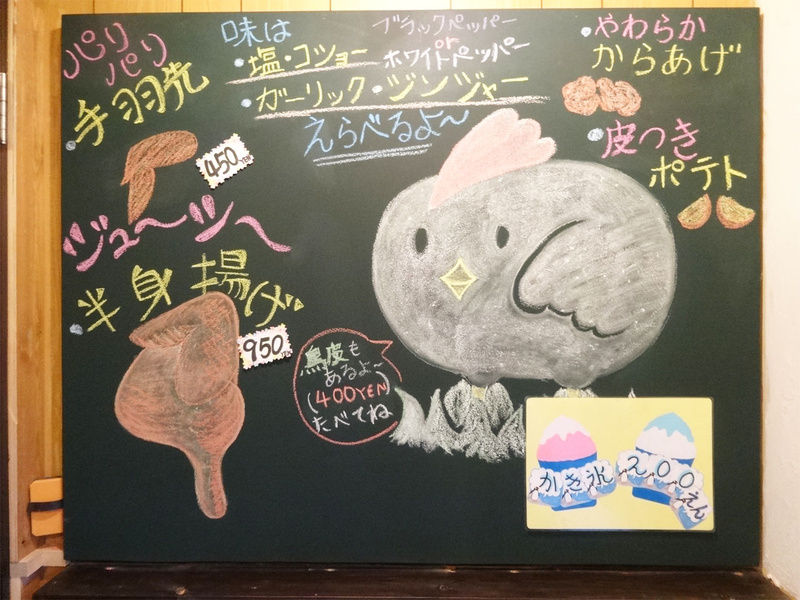 パリ
パリ
手羽先
450
YEN
味は
・塩・コショー
ブラックペッパー
or
ホワイトペッパー
・ガーリック・ジンジャー
えらべるよ〜
・やわらか
からあげ
・皮つき
ポテト
ジュ〜シ〜
・半身揚げ
950
鳥皮も
あるよ〜
(400YEN)
たべてね
かき氷
200
えん